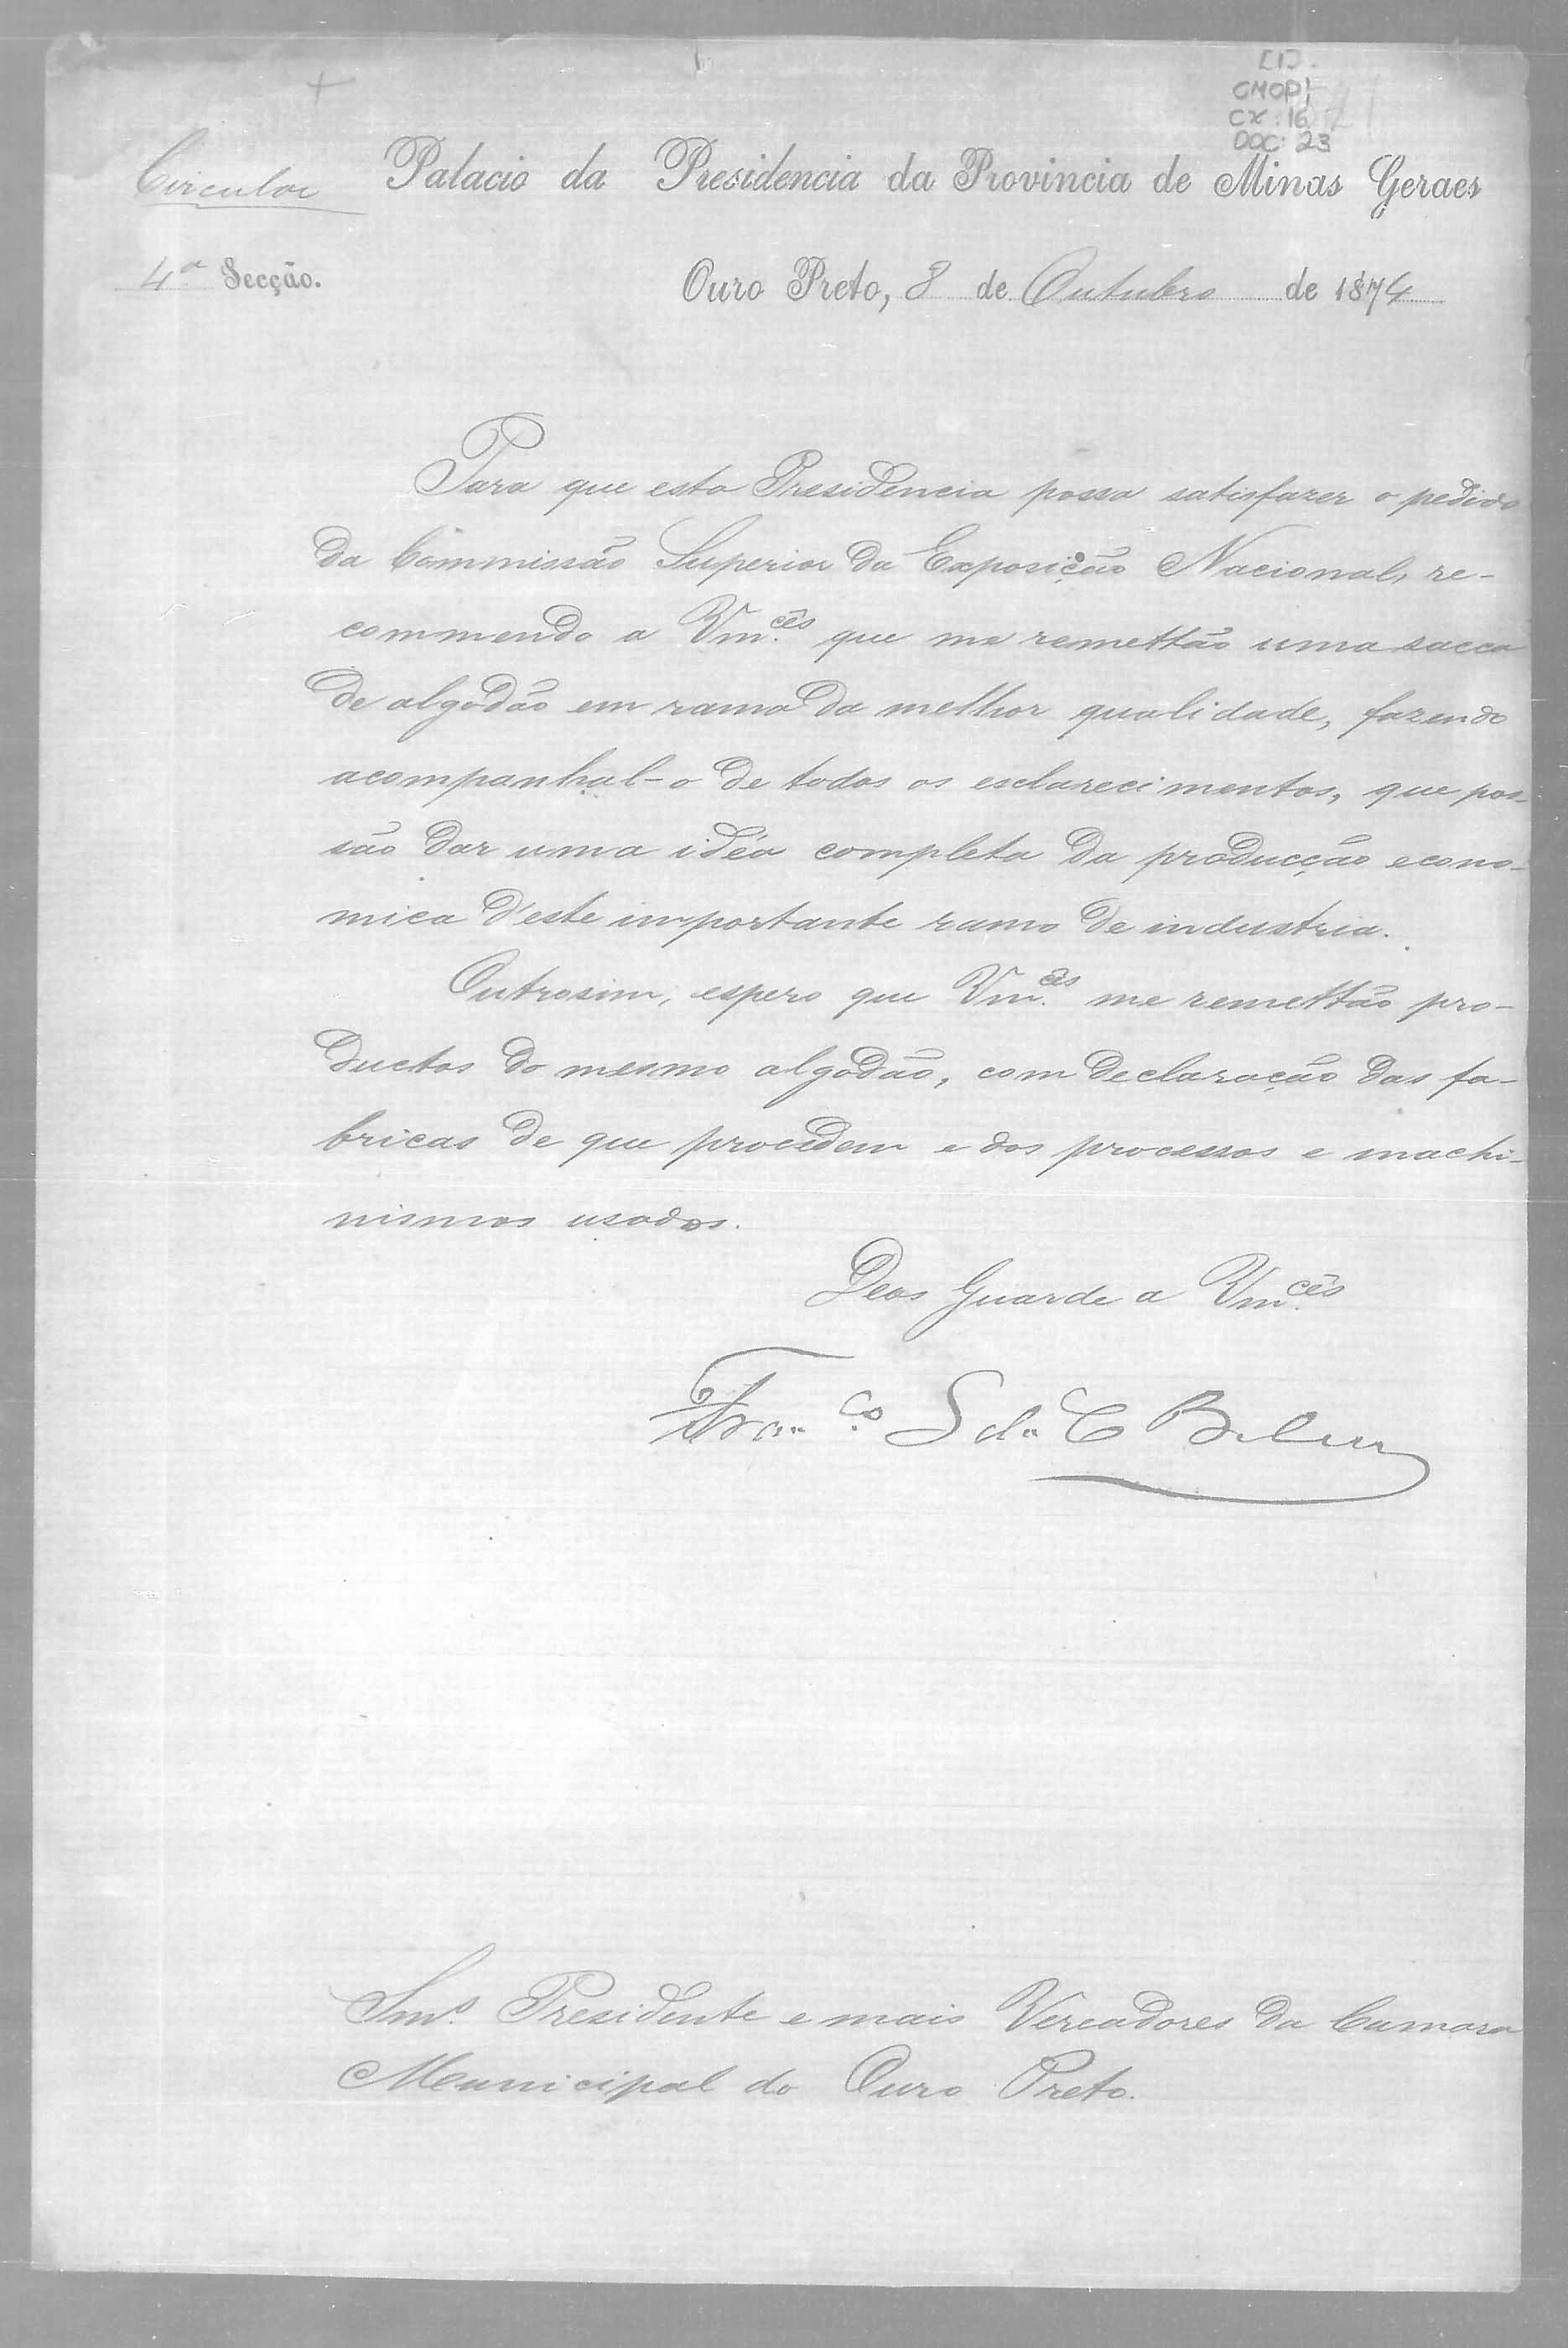 [1]
CMOP
CX: 16
DOC: 23
Circular Palacio da Presidencia da Provincia de Minas Geraes
4ª Secção.
Ouro Preto, 8 de Outubro de 1874
Para que esta Presidencia possa satisfazer o pedido
da Commissão Superior da Exposição Nacional, re-
commendo a Vm.cês que me remettão uma sacca
de algodão em rama da melhor qualidade, fazendo
acompanhal-o de todos os esclarecimentos, que pos-
são dar uma idéa completa da producção econo-
mica d'este importante ramo de industria.
Outrosim, espero que Vm.cês me remettão pro-
ductos do mesmo algodão, com declaração das fa-
bricas de que procedem e dos processos e machi-
nismos usados.
Deos Guarde a Vm.cês
Fran.co S da C Belem
Snr.s Presidente e mais Vereadores da Camara
Municipal do Ouro Preto.